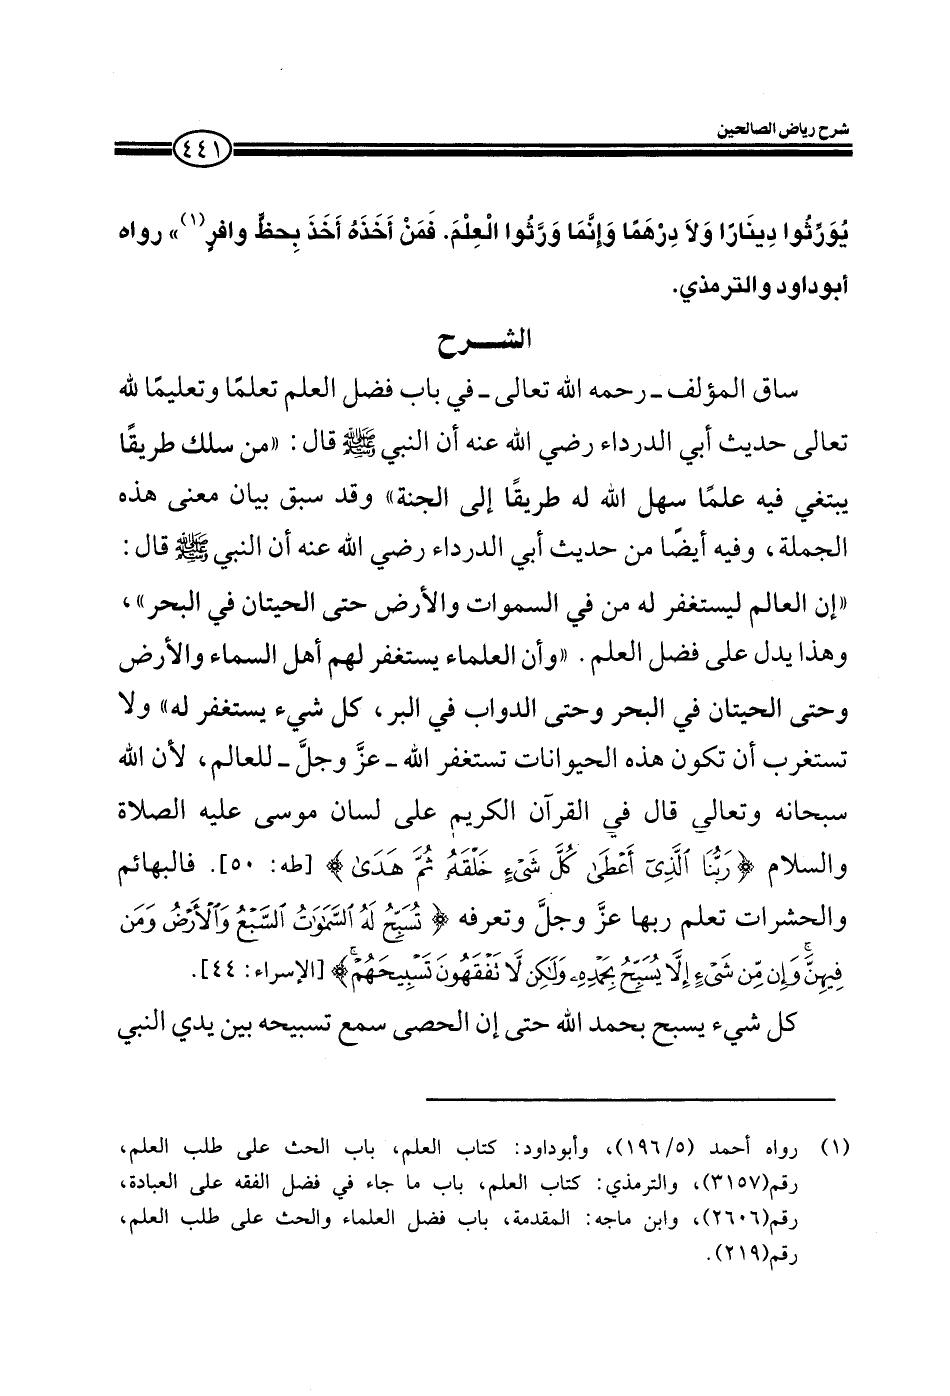 شرح رياض الصالحين
٤٤١
يُوَرِّثُوا دِينَارًا وَلاَ دِرْهَمًا وَإِنَّمَا وَرَّثُوا الْعِلْمَ. فَمَنْ أَخَذَهُ أَخَذَ بِحظٍّ وافرٍ(١)» رواه
أبوداود والترمذي.
الشـــرح
ساق المؤلف ـ رحمه الله تعالى ـ في باب فضل العلم تعلمًا وتعليمًا لله
تعالى حديث أبي الدرداء رضي الله عنه أن النبي ﷺ قال: «من سلك طريقًا
يبتغي فيه علمًا سهل الله له طريقًا إلى الجنة» وقد سبق بيان معنى هذه
الجملة، وفيه أيضًا من حديث أبي الدرداء رضي الله عنه أن النبي ﷺ قال:
«إن العالم ليستغفر له من في السموات والأرض حتى الحيتان في البحر»،
وهذا يدل على فضل العلم. «وأن العلماء يستغفر لهم أهل السماء والأرض
وحتى الحيتان في البحر وحتى الدواب في البر، كل شيء يستغفر له» ولا
تستغرب أن تكون هذه الحيوانات تستغفر الله ـ عزَّ وجلَّ ـ للعالم، لأن الله
سبحانه وتعالى قال في القرآن الكريم على لسان موسى عليه الصلاة
والسلام ﴿ رَبُّنَا ٱلَّذِىٓ أَعْطَىٰ كُلَّ شَىْءٍ خَلْقَهُۥ ثُمَّ هَدَىٰ ﴾ [طه: ٥٠]. فالبهائم
والحشرات تعلم ربها عزَّ وجلَّ وتعرفه ﴿ تُسَبِّحُ لَهُ ٱلسَّمَٰوَٰتُ ٱلسَّبْعُ وَٱلْأَرْضُ وَمَن
فِيهِنَّ ۚ وَإِن مِّن شَىْءٍ إِلَّا يُسَبِّحُ بِحَمْدِهِۦ وَلَٰكِن لَّا تَفْقَهُونَ تَسْبِيحَهُمْ ۚ ﴾ [الإسراء: ٤٤].
كل شيء يسبح بحمد الله حتى إن الحصى سمع تسبيحه بين يدي النبي
(١) رواه أحمد (٥/ ١٩٦)، وأبوداود: كتاب العلم، باب الحث على طلب العلم،
رقم(٣١٥٧)، والترمذي: كتاب العلم، باب ما جاء في فضل الفقه على العبادة،
رقم(٢٦٠٦)، وابن ماجه: المقدمة، باب فضل العلماء والحث على طلب العلم،
رقم(٢١٩).